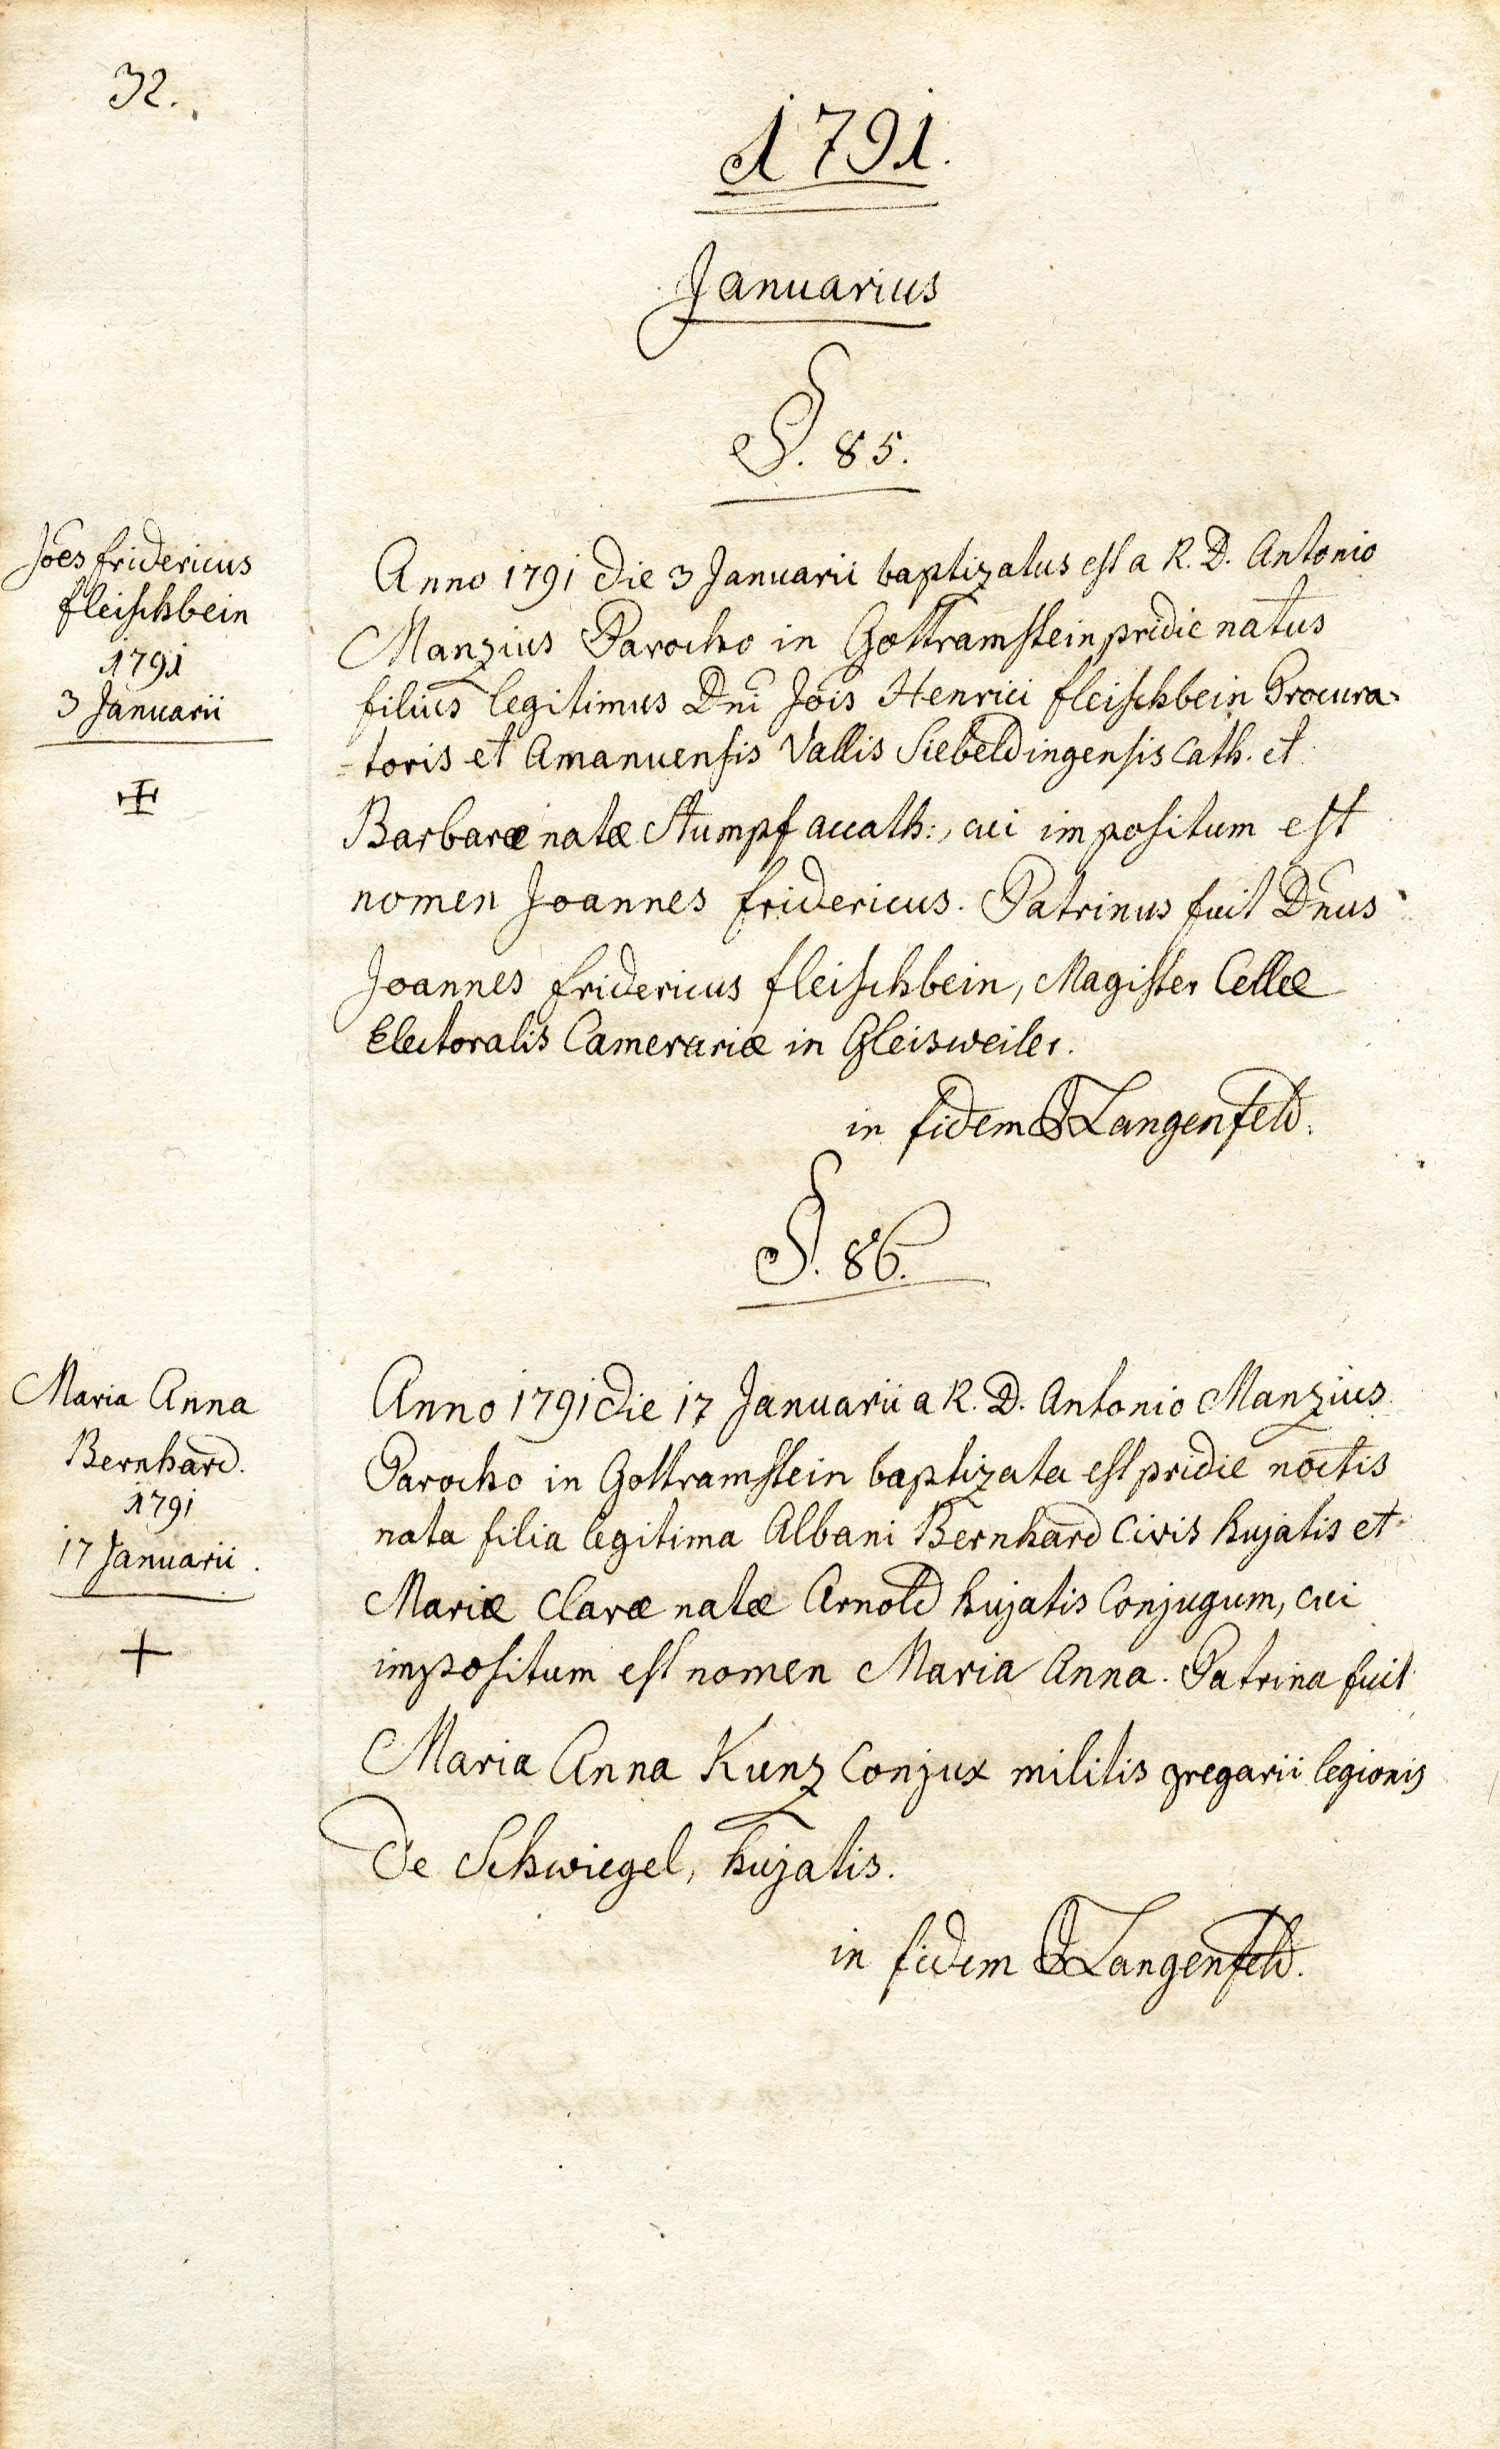 32.
1791.
Januarius
§. 85.
Joēs Fridericus
Fleischbein
1791
3 Januarii
Anno 1791 die 3 Januarii baptizatus est a R. D. Antonio
Manzius Parocho in Gottramstein pridie natus
filius legitimus Dni Jois Henrici Fleischbein Procura=
=toris et Amanuensis Vallis Siebeldingensis Cath. et
Barbaræ natæ Stumpf accath:, cui impositum est
nomen Joannes Fridericus. Patrinus fuit Dnus
Joannes Fridericus Fleischbein, Magister Cellæ
Electoralis Camerariæ in Gleisweiler.
in fidem J Langenfeld.
§. 86.
Maria Anna
Bernhard.
1791
17 Januarii.
Anno 1791 die 17 Januarii a R. D. Antonio Manzius
Parocho in Gottramstein baptizata est pridie noctis
nata filia legitima Albani Bernhard Civis hujatis et
Mariæ Claræ natæ Arnold hujatis Conjugum, cui
impositum est nomen Maria Anna. Patrina fuit
Maria Anna Kunz Conjux militis gregarii legionis
de Schwiegel, hujatis.
in fidem J Langenfeld.